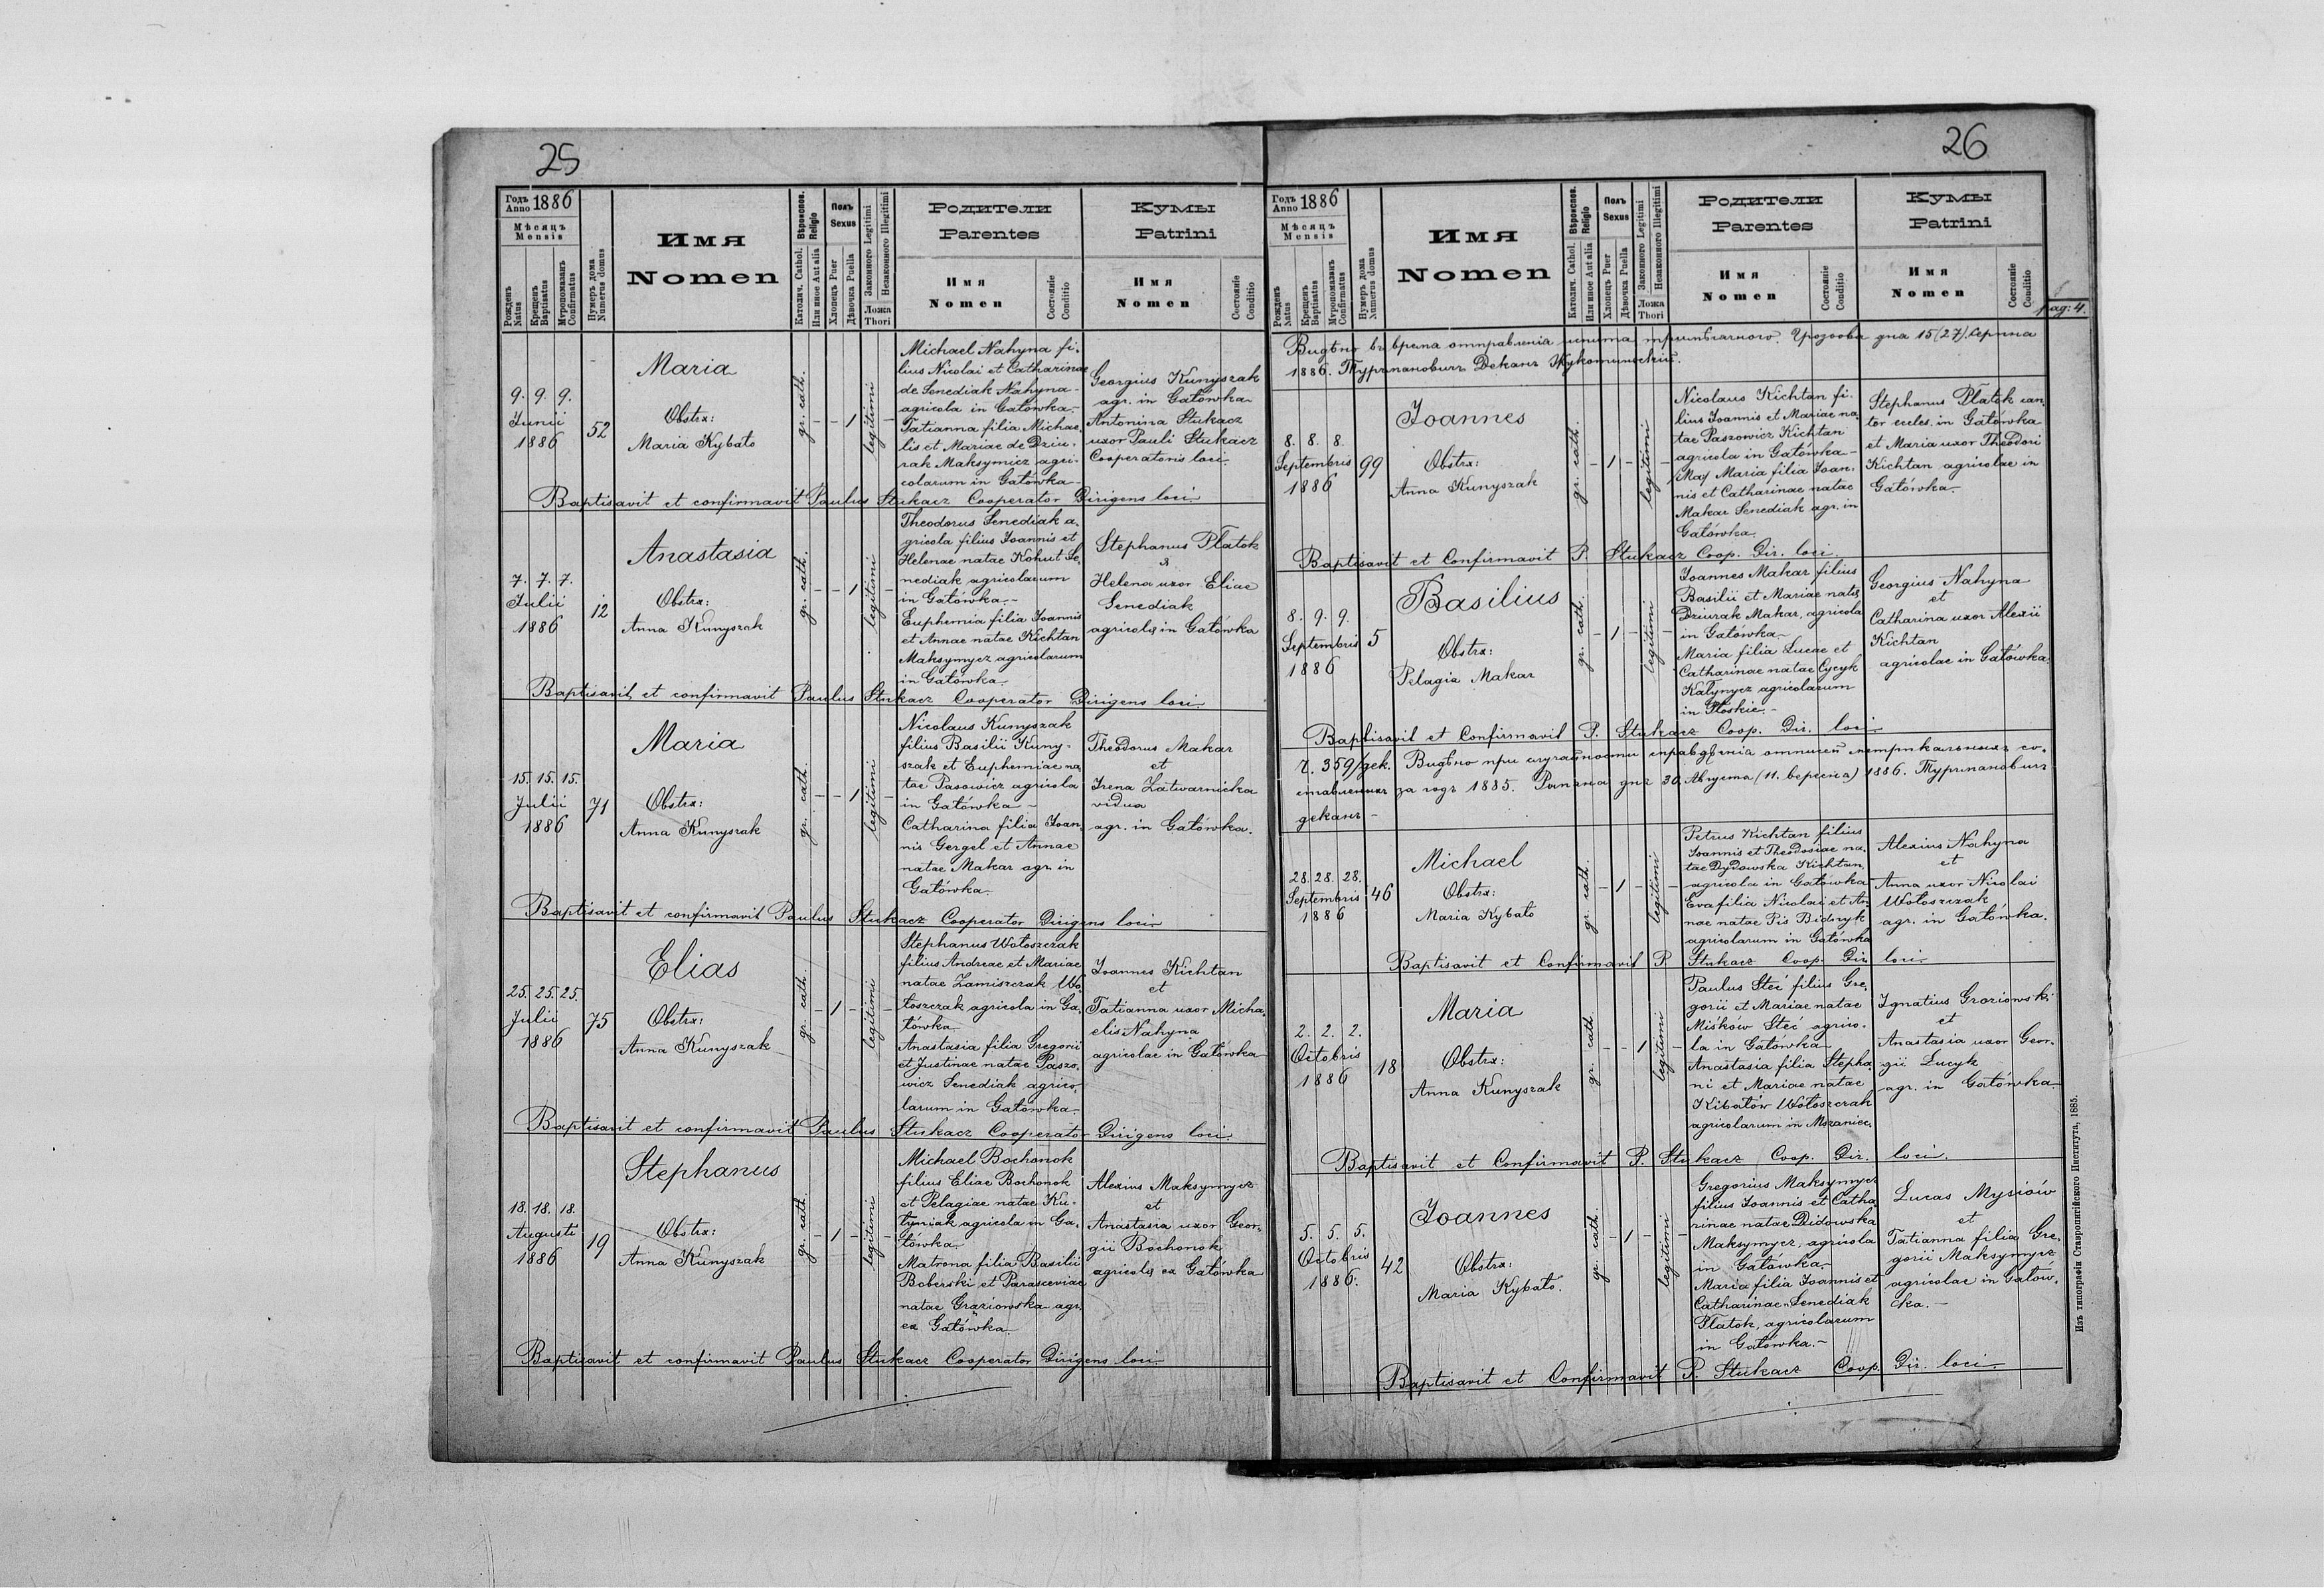 25
Годъ Anno 1886
Мѣсяцъ Mensis
Рожденъ Natus
Крещенъ Baptisatus
Мѵропомазанъ Confirmatus
Нумеръ дома Numerus domus
Имя Nomen
Вѣроиспов. Religio
Католич. Cathol.
Или иное Aut alia
Полъ Sexus
Хлопецъ Puer
Дѣвочка Puella
Законного Legitimi
Незаконного Illegitimi
Ложа Thori
Родители Parentes
Имя Nomen
Состоянiе Conditio
Кумы Patrini
Имя Nomen
Состоянiе Conditio
9. 9. 9.
Junii
1886
52
Maria
Obstx:
Maria Kybato
gr. cath.
- - 1 -
legitimi
Michael Nahyna fi-
lius Nicolai et Catharinae
de Senediak Nahyna -
agricola in Gatówka -
Tatianna filia Michae-
lis et Mariae de Dziu-
rak Maksymicz agri-
colarum in Gatówka
Georgius Kunyszak
agr. in Gatówka
Antonina Stukacz
uxor Pauli Stukacz
Cooperatoris loci
Baptisavit et confirmavit Paulus Stukacz Cooperator Dirigens loci
7. 7. 7.
Julii
1886
12
Anastasia
Obstx:
Anna Kunyszak
gr. cath.
- - 1 -
legitimi
Theodorus Senediak a-
gricola filius Joannis et
Helenae natae Kohut Se-
nediak agricolarum
in Gatówka -
Euphemia filia Joannis
et Annae natae Kichtan
Maksymycz agricolarum
in Gatówka
Stephanus Platok
&
Helena uxor Eliae
Senediak
agricolae in Gatówka
Baptisavit et confirmavit Paulus Stukacz Cooperator Dirigens loci
15. 15. 15.
Julii
1886
71
Maria
Obstx:
Anna Kunyszak
gr. cath.
- - 1 -
legitimi
Nicolaus Kunyszak
filius Basilii Kuny-
szak et Euphemiae na-
tae Pasowicz agricola
in Gatówka -
Catharina filia Joan-
nis Gergel et Annae
natae Makar agr. in
Gatówka
Theodorus Makar
et
Irena Zatwarnicka
vidua
agr. in Gatówka.
Baptisavit et confirmavit Paulus Stukacz Cooperator Dirigens loci
25. 25. 25.
Julii
1886
75
Elias
Obstx:
Anna Kunyszak
gr. cath.
- 1 - -
legitimi
Stephanus Wotoszczak
filius Andreae et Mariae
natae Zamiszczak Wo-
toszczak agricola in Ga-
tówka
Anastasia filia Gregorii
et Justinae natae Paszo-
wicz Senediak agrico-
larum in Gatówka
Joannes Kichtan
et
Tatianna uxor Micha-
elis Nahyna
agricolae in Gatówka
Baptisavit et confirmavit Paulus Stukacz Cooperator Dirigens loci
18. 18. 18.
Augusti
1886
19
Stephanus
Obstx:
Anna Kunyszak
gr. cath.
- 1 - -
legitimi
Michael Bochonok
filius Eliae Bochonok
et Pelagiae natae Ku-
tyniak agricola in Ga-
tówka
Matrona filia Basilii
Boberski et Parasceviae
natae Graziowska agr.
ex Gatówka
Alexius Maksymycz
et
Anastasia uxor Geor-
gii Bochonok
agricolae ex Gatówka
Baptisavit et confirmavit Paulus Stukacz Cooperator Dirigens loci
26
Годъ Anno 1886
Мѣсяцъ Mensis
Рожденъ Natus
Крещенъ Baptisatus
Мѵропомазанъ Confirmatus
Нумеръ дома Numerus domus
Имя Nomen
Вѣроиспов. Religio
Католич. Cathol.
Или иное Aut alia
Полъ Sexus
Хлопецъ Puer
Дѣвочка Puella
Законного Legitimi
Незаконного Illegitimi
Ложа Thori
Родители Parentes
Имя Nomen
Состоянiе Conditio
Кумы Patrini
Имя Nomen
Состоянiе Conditio
pag: 4.
Видѣно въ время отправленiя дня 15/(27) Серпня
1886. Турмановичъ Деканъ
8. 8. 8.
Septembris
1886
99
Joannes
Obstx:
Anna Kunyszak
gr. cath.
- 1 - -
legitimi
Nicolaus Kichtan fi-
lius Joannis et Mariae na-
tae Paszowicz Kichtan
agricola in Gatówka -
Maria filia Joan-
nis et Catharinae natae
Makar Senediak agr. in
Gatówka
Stephanus Platok can-
tor eccles. in Gatówka
et Maria uxor Theodori
Kichtan agricolae in
Gatówka
Baptisavit et Confirmavit P. Stukacz Coop. Dir. loci
8. 9. 9.
Septembris
1886
5
Basilius
Obstx:
Pelagia Makar
gr. cath.
- 1 - -
legitimi
Joannes Makar filius
Basilii et Mariae natae
Dziurak Makar, agricola
in Gatówka -
Maria filia Lucae et
Catharinae natae Cycyk
Katynycz agricolarum
in Ptoskie. -
Georgius Nahyna
et
Catharina uxor Alexii
Kichtan
agricolae in Gatówka
Baptisavit et Confirmavit P. Stukacz Coop. Dir. loci
Ч. 359/дек. Видѣно при случайности справдженія отписей метрикальныхъ со-
ставленныхъ за годъ 1885. дня 30. Августа (11. вересня) 1886. Турмановичъ
деканъ -
28. 28. 28.
Septembris
1886
46
Michael
Obstx:
Maria Kybato
gr. cath.
- 1 - -
legitimi
Petrus Kichtan filius
Joannis et Theodosiae na-
tae Dydowska Kichtan
agricola in Gatówka
Eva filia Nicolai et An-
nae natae Pis Bidnyk
agricolarum in Gatówka
Alexius Nahyna
et
Anna uxor Nicolai
Wotoszczak
agr. in Gatówka.
Baptisavit et Confirmavit P. Stukacz Coop. Dir. loci
2. 2. 2.
Octobris
1886
18
Maria
Obstx:
Anna Kunyszak
gr. cath.
- - 1 -
legitimi
Paulus Steć filius Gre-
gorii et Mariae natae
Miśków Steć agrico-
la in Gatówka
Anastasia filia Stepha-
ni et Mariae natae
Kibatów Wotoszczak
agricolarum in Mszaniec.
Ignatius Graziowski
et
Anastasia uxor Geor-
gii Lucyk
agr. in Gatówka
Baptisavit et Confirmavit P. Stukacz Coop. Dir. loci.
5. 5. 5.
Octobris
1886.
42
Joannes
Obstx:
Maria Kybato.
gr. cath.
- 1 - -
legitimi
Gregorius Maksymycz
filius Joannis et Catha-
rinae natae Didowska
Maksymycz, agricola
in Gatówka
Maria filia Joannis et
Catharinae Senediak
Platok, agricolarum
in Gatówka. -
Lucas Mysiów
et
Tatianna filia Gre-
gorii Maksymycz
agricolae in Gatów-
ka. -
Baptisavit et Confirmavit P. Stukacz Coop. Dir. loci.
Изъ типографіи Ставропигійского Института, 1885.